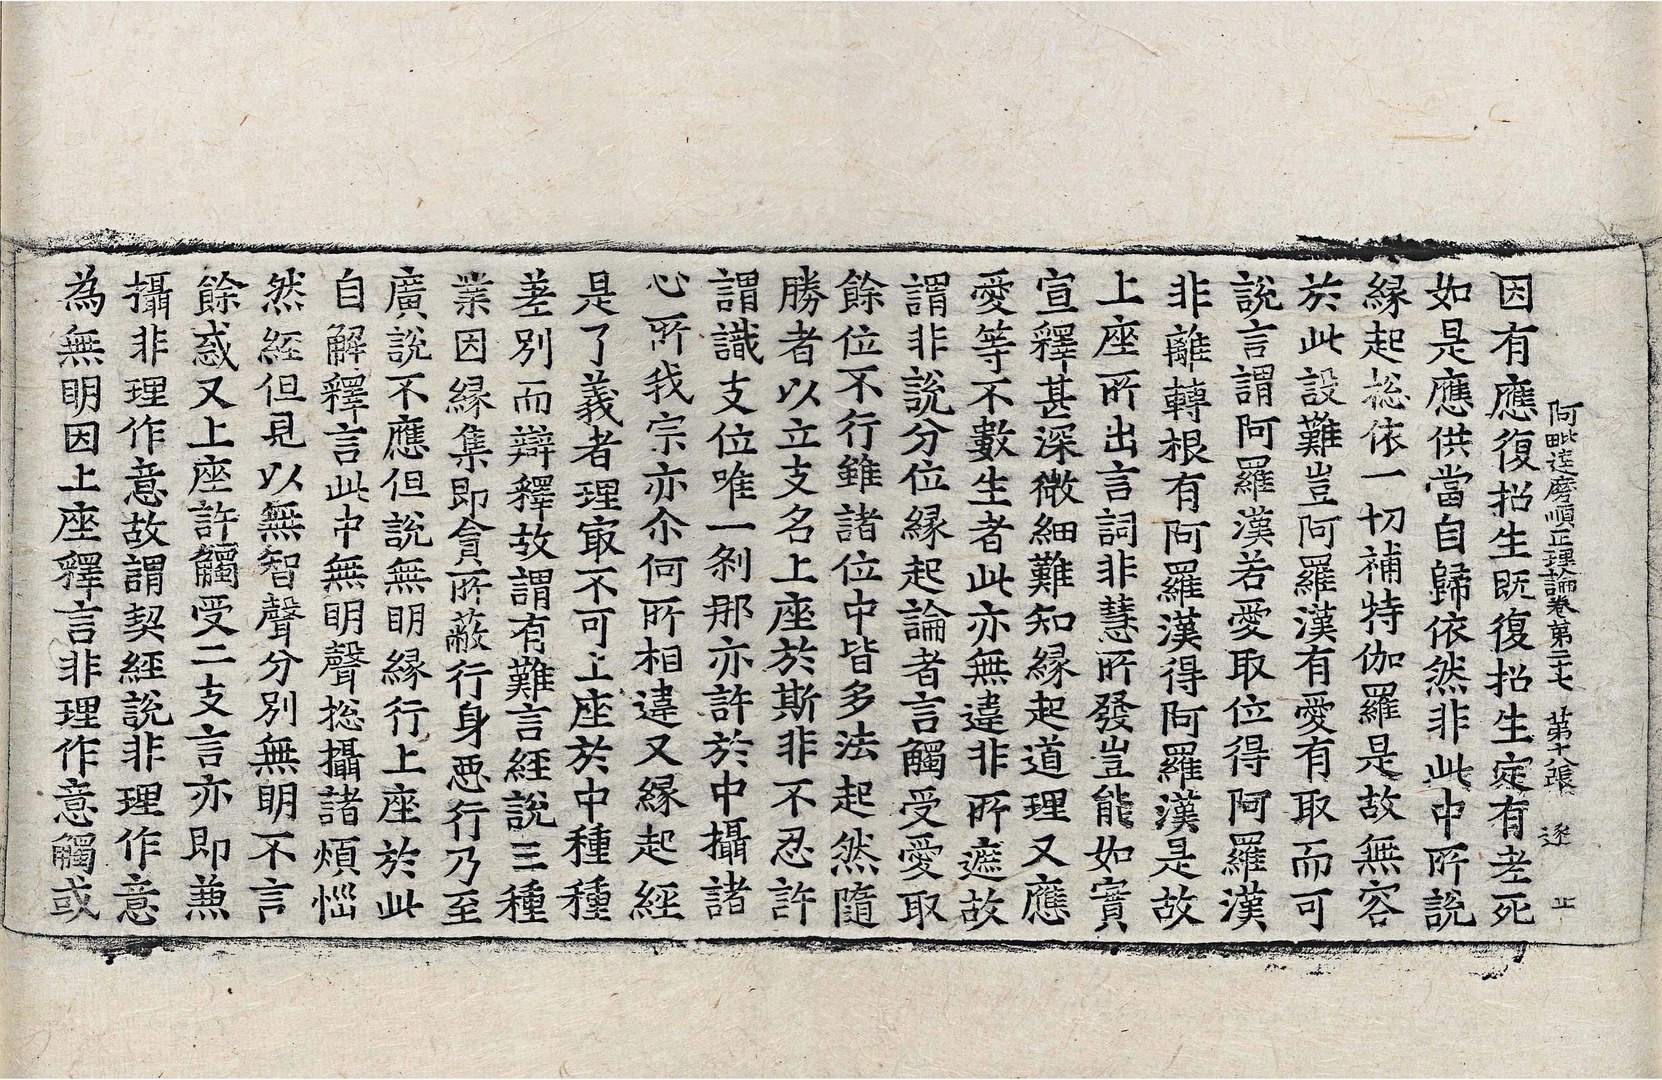 阿毗達磨順正理論卷第二十七 第十八張 逐 止
因有應復招生旣復招生定有老死
如是應供當自歸依然非此中所說
緣起捴依一切補特伽羅是故無容
於此設難豈阿羅漢有愛有取而可
說言謂阿羅漢若愛取位得阿羅漢
非離轉根有阿羅漢得阿羅漢是故
上座所出言詞非慧所發豈能如實
宣釋甚深微細難知緣起道理又應
愛等不數生者此亦無違非所遮故
謂非說分位緣起論者言觸受愛取
餘位不行雖諸位中皆多法起然隨
勝者以立支名上座於斯非不忍許
謂識支位唯一剎那亦許於中攝諸
心所我宗亦尒何所相違又緣起經
是了義者理㝡不可上座於中種種
差別而辯釋故謂有難言經說三種
業因緣集即貪所蔽行身惡行乃至
廣說不應但說無明緣行上座於此
自解釋言此中無明聲捴攝諸煩惱
然經但見以無智聲分別無明不言
餘惑又上座許觸受二支言亦即兼
攝非理作意故謂契經說非理作意
為無明因上座釋言非理作意觸或